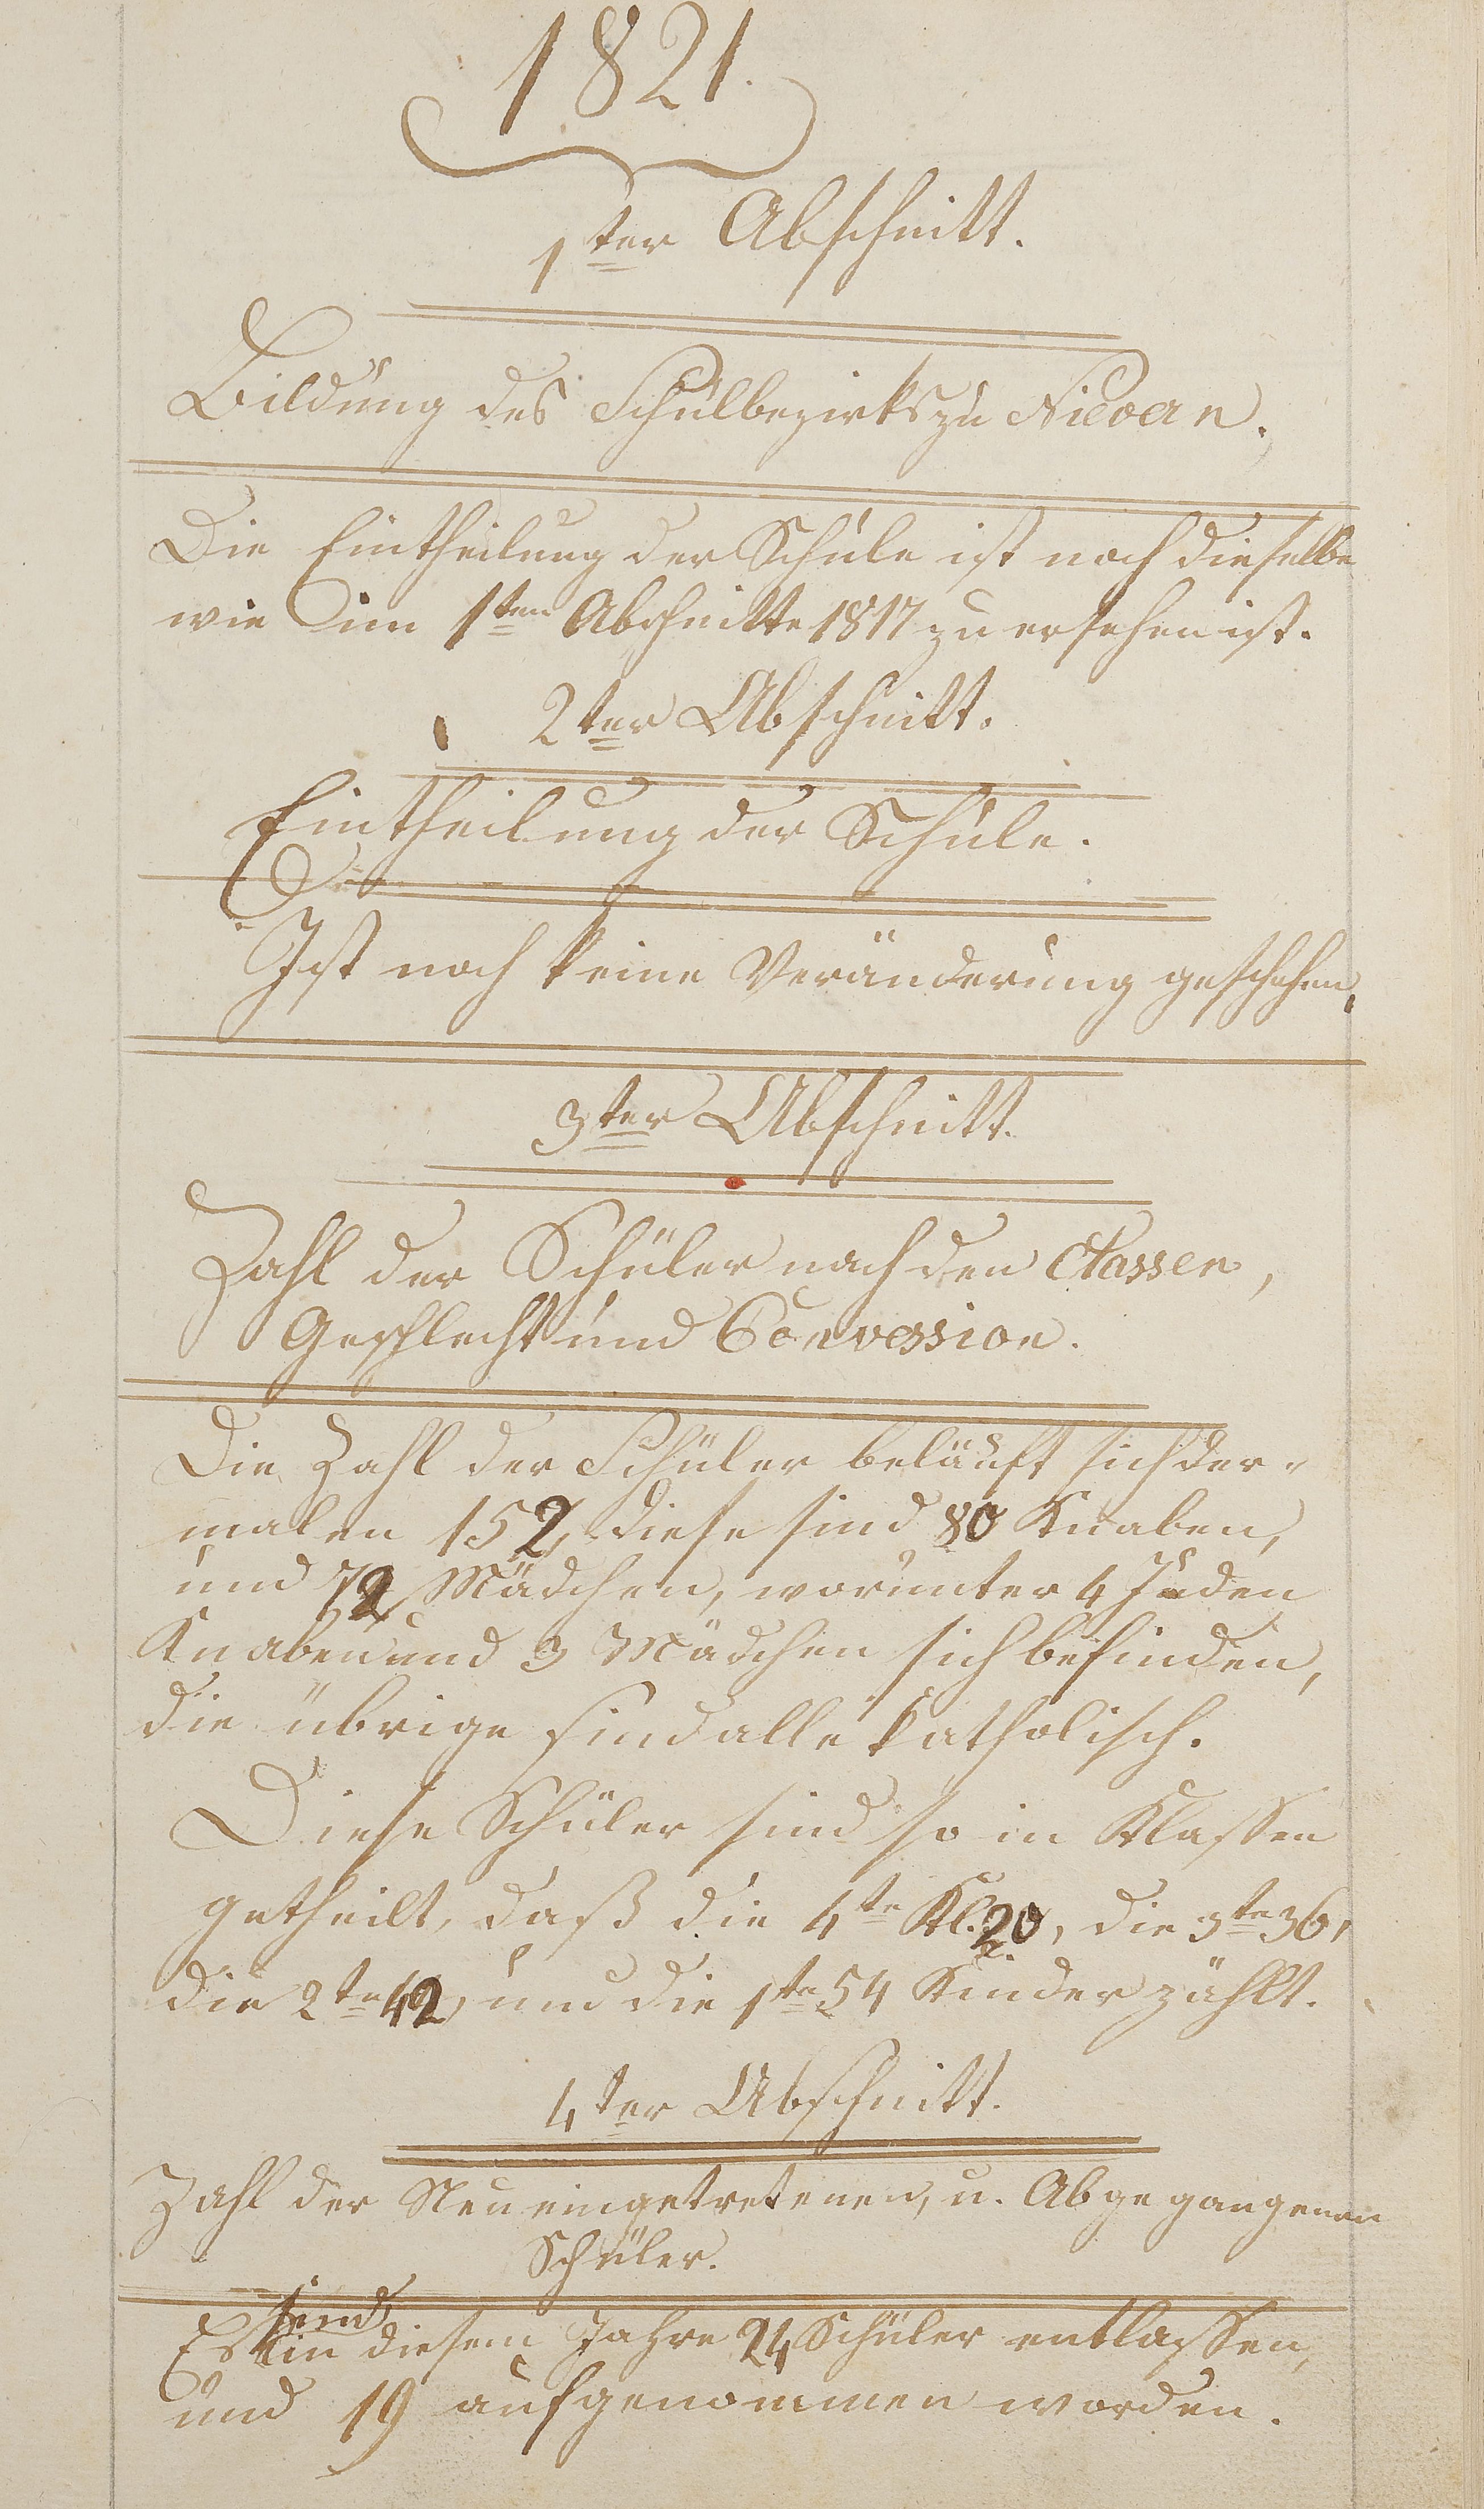 1821.
1ter Abschnitt.
Bildung des Schulbezirks zu Nievern.
Die Eintheilung der Schule ist noch dieselbe
wie im 1ten Abschnitte 1817 zu ersehen ist.
2ter Abschnitt.
Eintheilung der Schule.
Ist noch keine Veränderung geschehen.
3ter Abschnitt.
Zahl der Schüler nach den Classen,
Geschlecht und Convession.
Die Zahl der Schüler beläuft sich der-
malen 152, diese sind 80 Knaben,
und 72 Mädchen, worunter 4 Juden
Knaben und 3 Mädchen sich befinden,
die übrige sind alle katholisch.
Diese Schüler sind so in Klassen
getheilt, daß die 4te Kl. 20, die 3te 36,
die 2te 42, und die 1te 54 Kinder zählt.
4ter Abschnitt.
Zahl der Neueingetretenen, u. Abgegangenen
Schüler.
Es sind in diesem Jahre 24 Schüler entlassen,
und 19 aufgenommen worden.